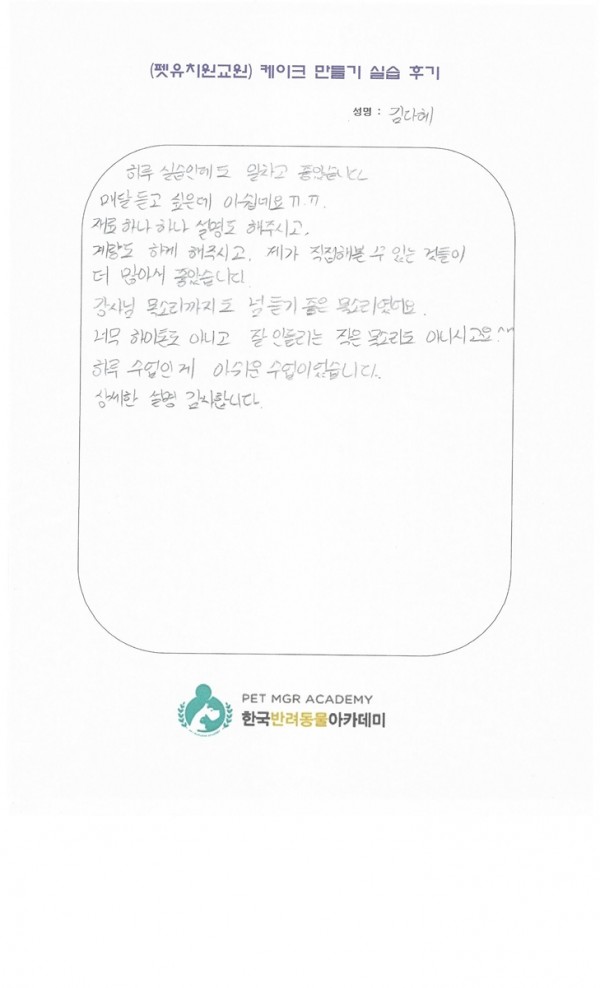 (펫유치원교원) 케이크 만들기 실습 후기
성명 : 김다혜
하루 실습인데도 알차고 좋았습니다
매달 듣고 싶은데 아쉽네요ㅠ.ㅠ.
재료 하나 하나 설명도 해주시고,
계량도 하게 해주시고, 제가 직접해볼 수 있는 것들이
더 많아서 좋았습니다
강사님 목소리까지도 넘 듣기 좋은 목소리였어요.
너무 하이톤도 아니고 잘 안들리는 작은 목소리도 아니시고요^^
하루 수업인게 아쉬운 수업이었습니다.
상세한 설명 감사합니다.
PET MGR ACADEMY
한국반려동물아카데미